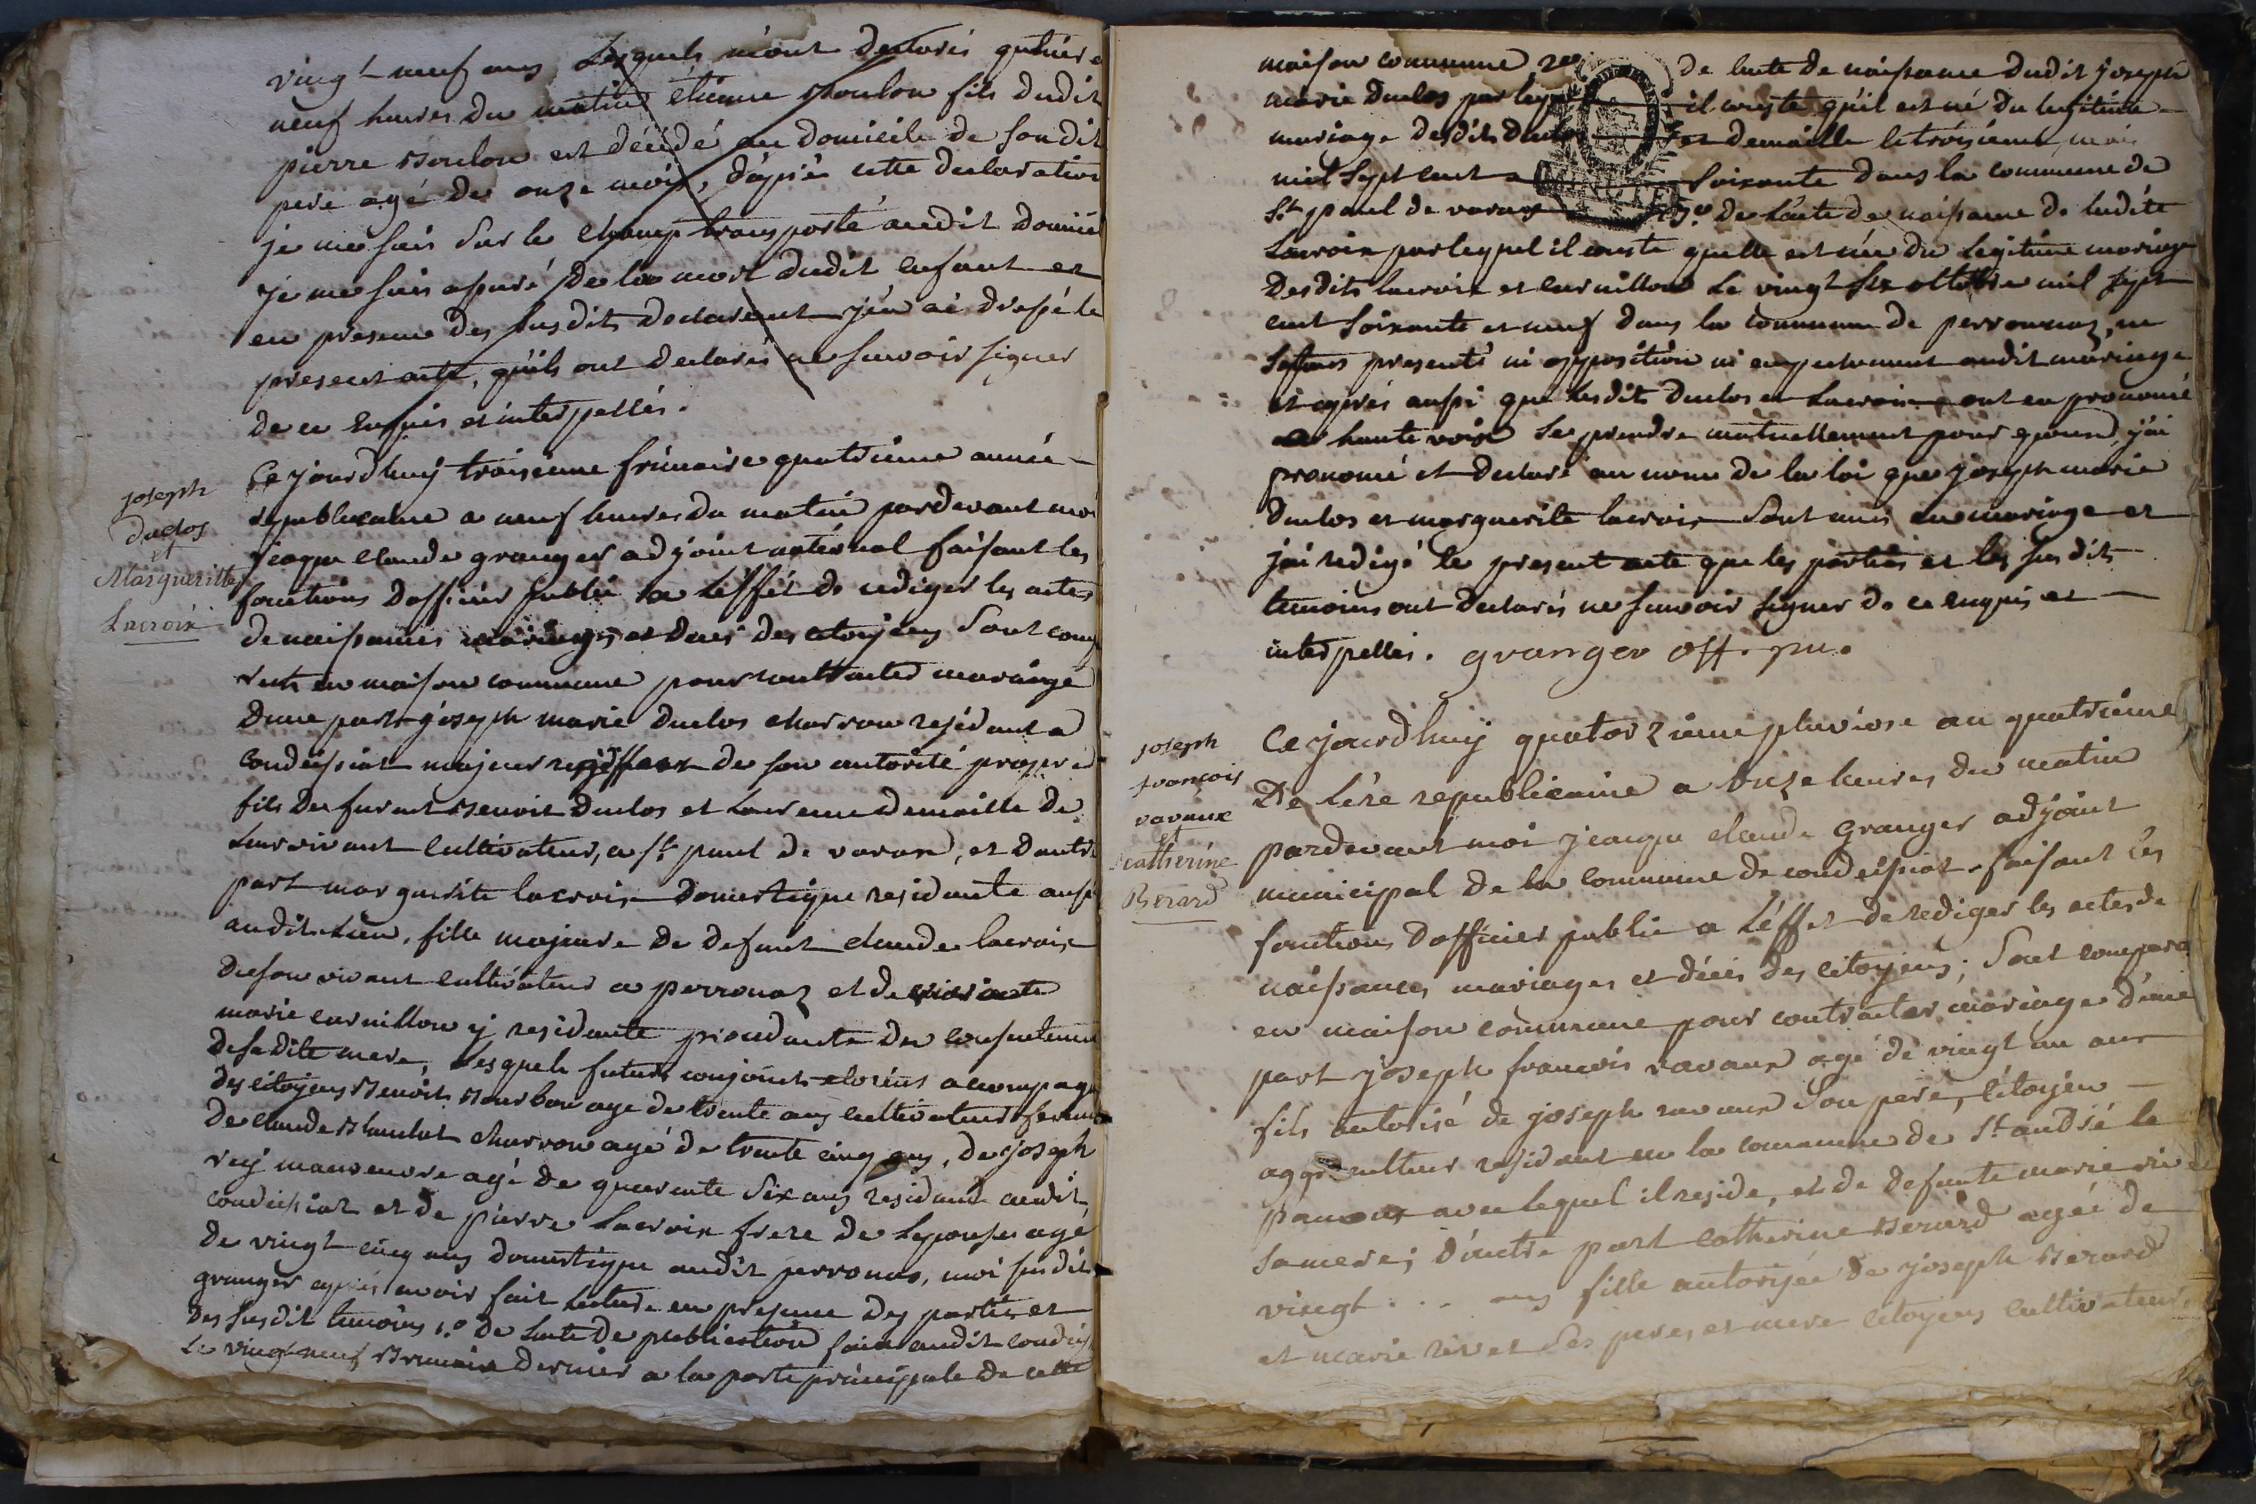 vingt neuf ans lesquels m'ont declarés qu'hier a
neuf heures du matin étienne Moulon fils dudit
pierre Moulon est décédé au domicile de son dit
pere agé de onze mois, d'après cette declaration
je me suis sur le champ transporté audit domicil
je me suis assuré de la mort dudit enfant et
en presence des susdits declarant j'en ai dressé le
present acte, qu'ils ont declarés ne savoir signer
de ce enquis et interpellés.
joseph
duclos
et
Margueritte
Lacroix
Ce jourdhuy troisieme frimaire quatrieme année
republicaine a neuf heures du matin pardevant moi
jcaque claude granger adjoint faisant les
fonctions dofficier public a l'éffét de rediger les actes
de naissances mariages et deces des citoyens sont comp
rus en maison commune pour contracter mariage
dune part joseph marie duclos charron residant a
condeissiat majeur de son autorité propre
fils du furent Benoit duclos et Laurence demaille de
survivant cultivateur, a st. paul de varax, et dautre
part marguerite lacroix domestique residante aussi
audit lieu, fille majeure de defunt claude lacroix
de son vivant cultivateur a perronaz et de
marie curnillon y residante du consentement
de sa dite mere, lesquels futurs conjoints accompagn
des citoyens Benoit Bourbon age de trente ans cultivateur
de claude charron agé de trente cinq ans, de joseph
rey manoeuvre agé de quarente six ans residant audit
condeissiat et de pierre Lacroix frere de lepouse agé
de vingt cinq ans domestique audit perronas, moi susdit
granger après avoir fait lecture en presence des parties et
des susdit temoins 1.o de lacte de publication faite audit condeiss
le vingt neuf Brumaire dernier a la porte principale de cette
maison commune 2o de lacte de naissance dudit joseph
marie duclos par lequel il conste qu'il est né du legitime
mariage desdits duclos et demaille le troisieme mai
mil sept cent soixante dans la commune de
st. paul de varax 3o de lacte de naissance de ladite
Lacroix par lequel il conste quelle est née du legitime mariage
desdits lacroix et curnillon le vingt six octobre mil sept
cent soixante et neuf dans la commune de perronnaz, ne
presenté ni opposition ni empechement audit mariage
et après aussi que lesdits duclos et Lacroix ont eu prononcé
a haute voix se prendre mutuellement pour epoux, j'ai
prononcé et declaré au nom de la loi que joseph marie
duclos et marguerite lacroix sont unis en mariage et
jai redigé le present acte que les parties et les susdits
temoins ont declarés ne savoir signer de ce enquis et
interpellés. granger off. pu.
joseph
francois
ravaux
et
catherine
Berard
Ce jourdhuy quatorzieme pluviose an quatrieme
De l'ére republicaine a onze heures du matin
pardevant moi jcaque claude Granger adjoint
municipal de la commune de condeissiat faisant les
fonctions dofficier public a l'éffet de rediger les actes de
naissances mariages et décès des citoyens; sont comparu
en maison commune pour contracter mariage d'une
part joseph francois ravaux agé de vingt un ans
fils autorisé de joseph ravaux son pere, citoyen
aggriculteur residant en la commune de st. andré le
panoux avec lequel il reside, et de defunte marie
sa mere; d'autre part catherine Berard agée de
vingt . . . ans fille autorisée de joseph Berard
et marie rivet ses peres et mere citoyens cultivateurs